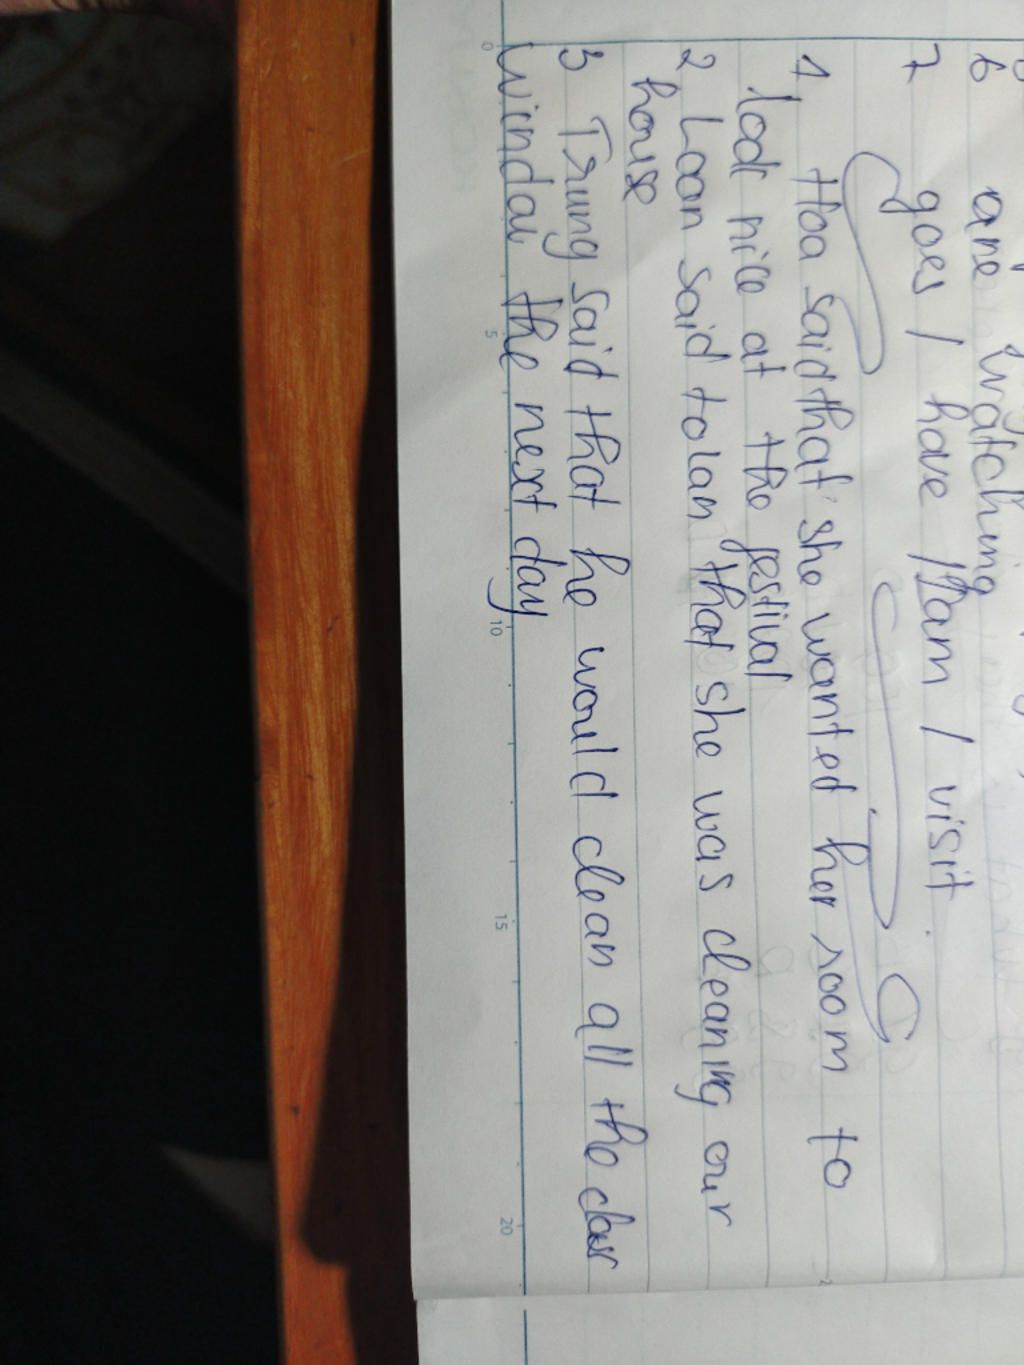 6 are watching
7 goes / have / Pam / visit
1 Hoa said that she wanted her room to
lodi nice at the festival
2 Loan said to lan that she was cleaning our
house
3 Trung said that he would clean all the clar
windai the next day
0 5 10 15 20